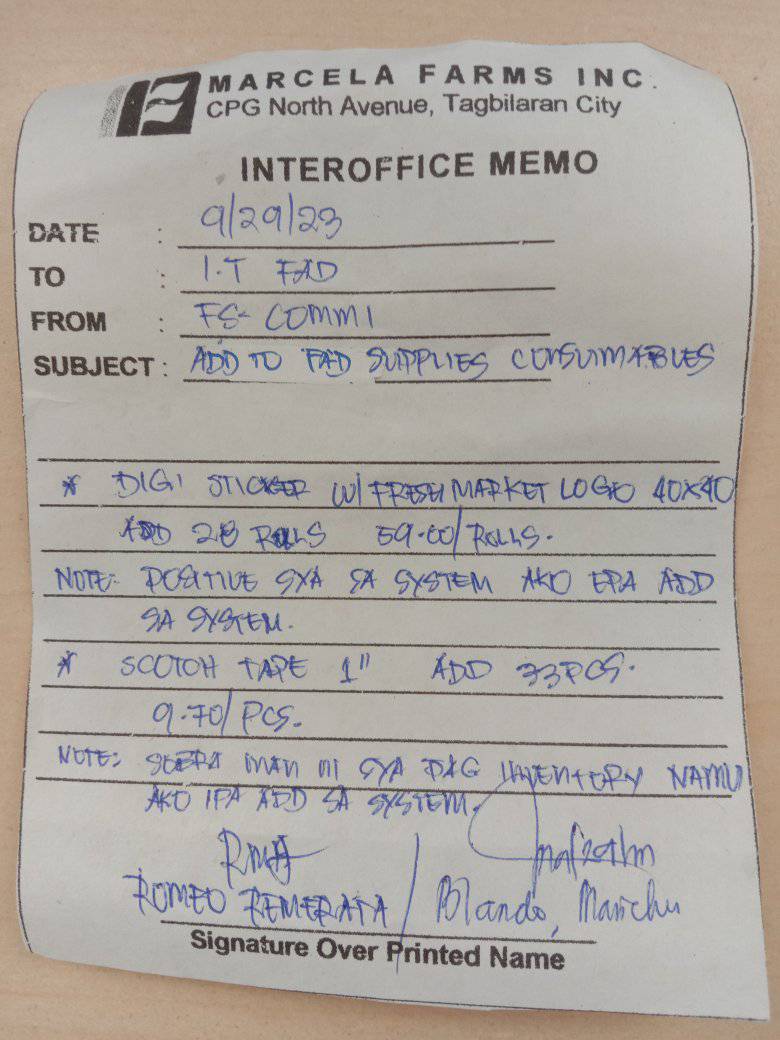 MARCELA FARMS INC.
CPG North Avenue, Tagbilaran City
INTEROFFICE MEMO
DATE : 9/29/23
TO : I.T FAD
FROM : FS- COMMI
SUBJECT : ADD TO FAD SUPPLIES CONSUMABLES
* DIGI STICKER W/ FRESH MARKET LOGO 40X40
ADD 28 ROLLS 59.00/ROLLS.
NOTE: POSITIVE SYA SA SYSTEM AKO EPA ADD
SA SYSTEM.
* SCOTCH TAPE 1" ADD 33PCS.
9.70/PCS.
NOTE: SOBRA MAN NI SYA PAG INVENTORY NAMO
AKO IPA ADD SA SYSTEM.
ROMEO REMERATA / Blando, Marichu
Signature Over Printed Name